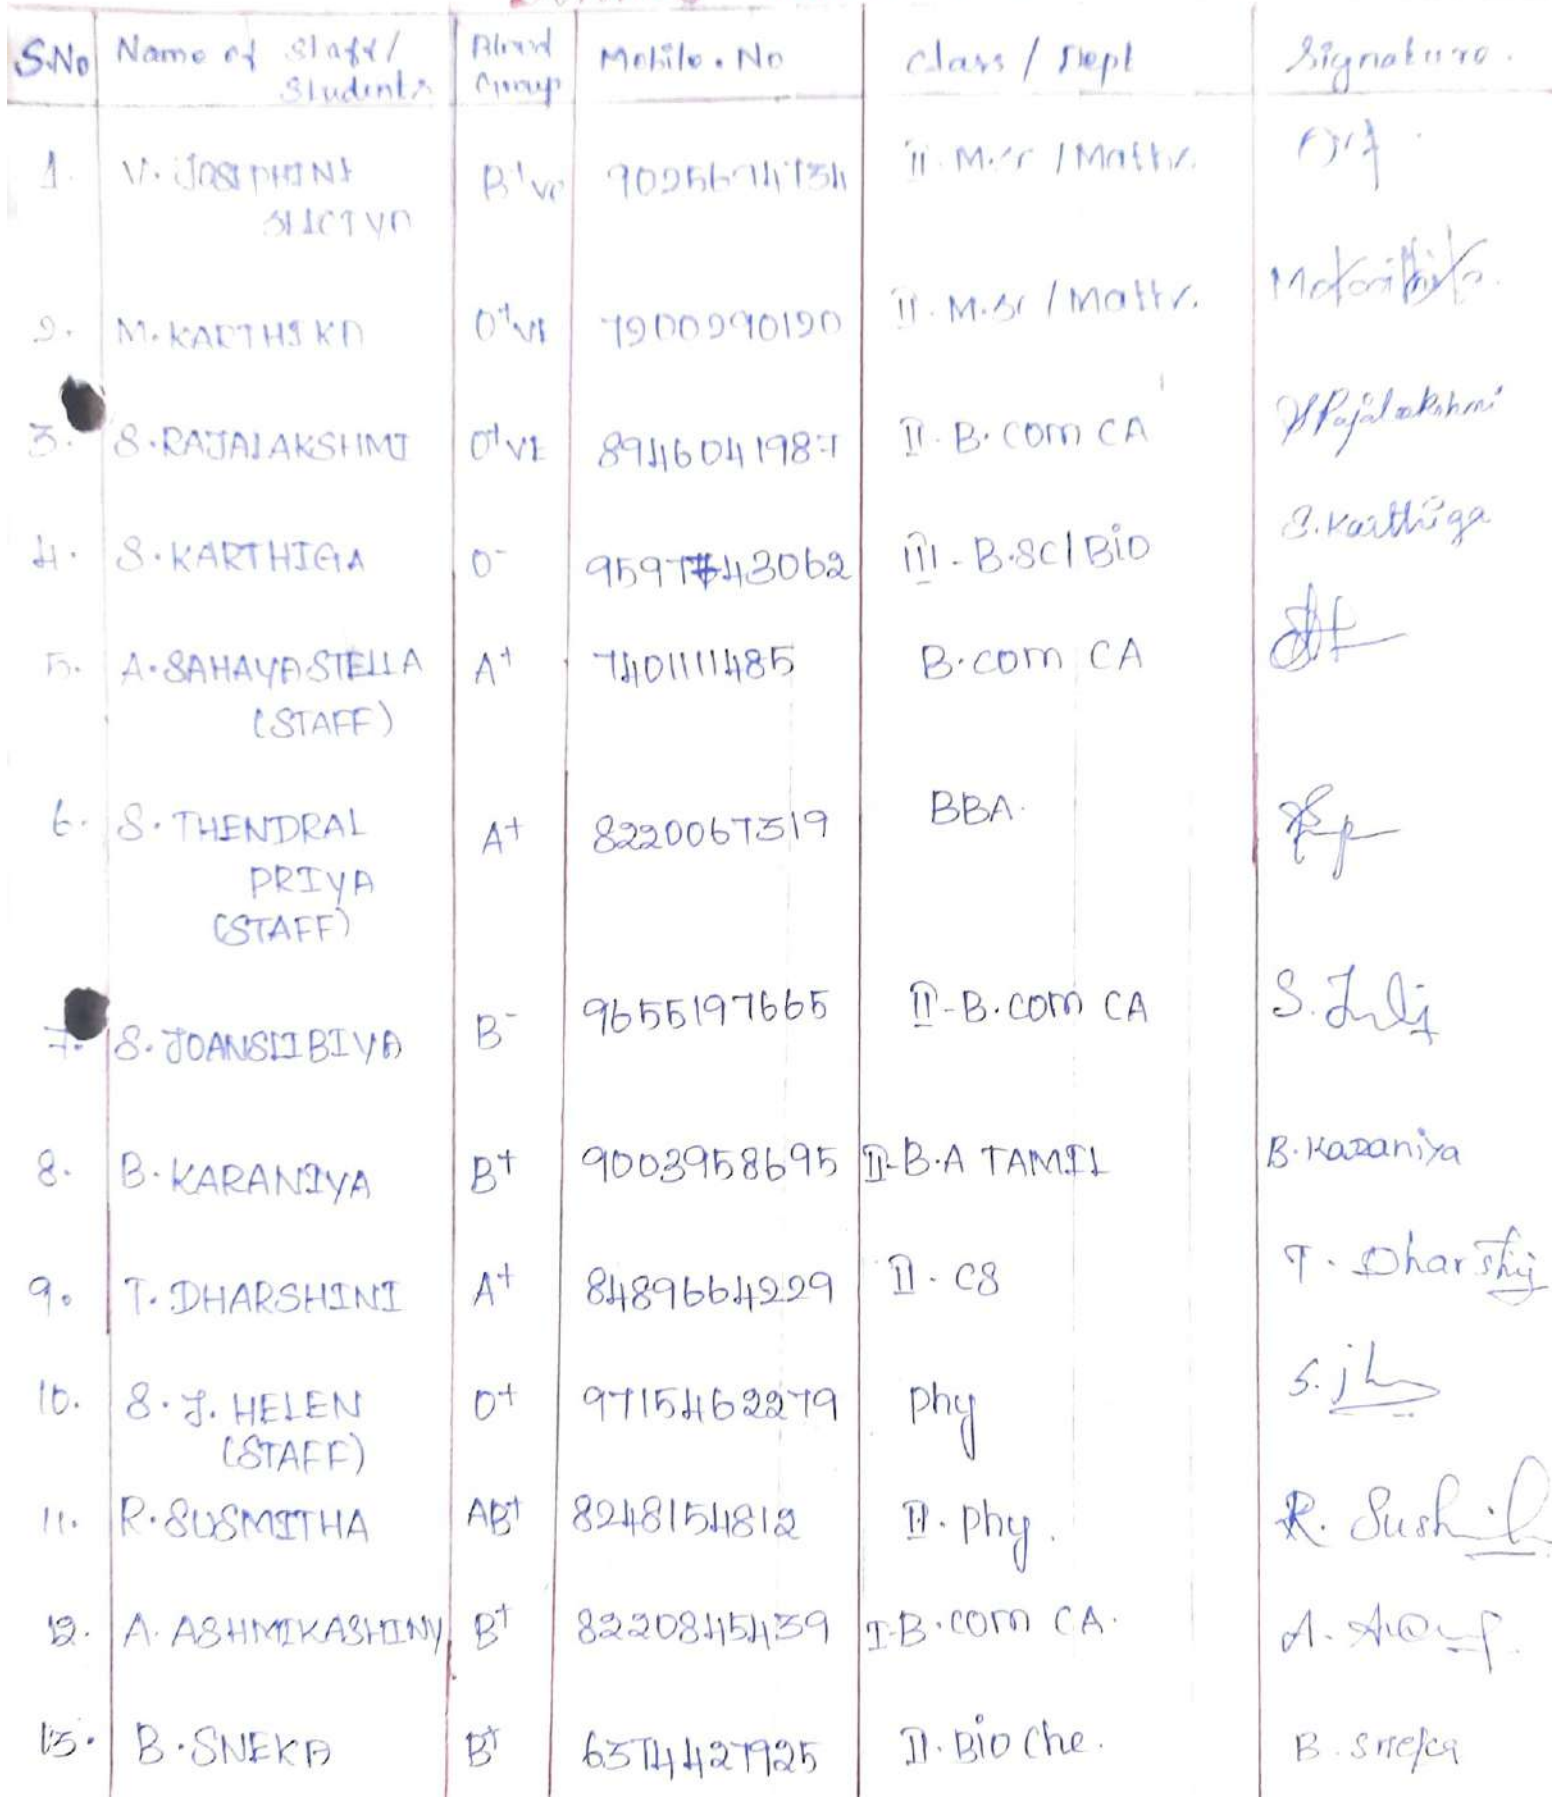 S.No Name of Staff/ Blood Mobile. No Class / Dept Signature.
Students Group
1. V. JOSEPHINE B+ve II. M.Sc / Maths.
2. M. KARTHIKA O+ve 7200290120 II. M.Sc / Maths.
3. S. RAJALAKSHMI O+ve 8946041987 II. B. Com CA Rajalakshmi
4. S. KARTHIGA O- III - B.SC / Bio S. Karthiga
5. A. SAHAYA STELLA A+ 7401111485 B.com CA
(STAFF)
6. S. THENDRAL A+ 8220067319 BBA.
PRIYA
(STAFF)
7. S. JOANSLIBIYA B- 9655197665 II - B. com CA S.
8. B. KARANIYA B+ 9003958695 II-B.A TAMIL B. Karaniya
9. T. DHARSHINI A+ 8489664229 II. CS T. Dharshij
10. S. J. HELEN O+ 9715462279 Phy
(STAFF)
11. R. SUSMITHA AB+ 8248154812 II. Phy. R.
12. A. ASHMIKASHINY B+ 8220845439 I-B.com CA. A.
13. B. SNEKA B+ 6374427925 II. Bio Che. B. Sneka